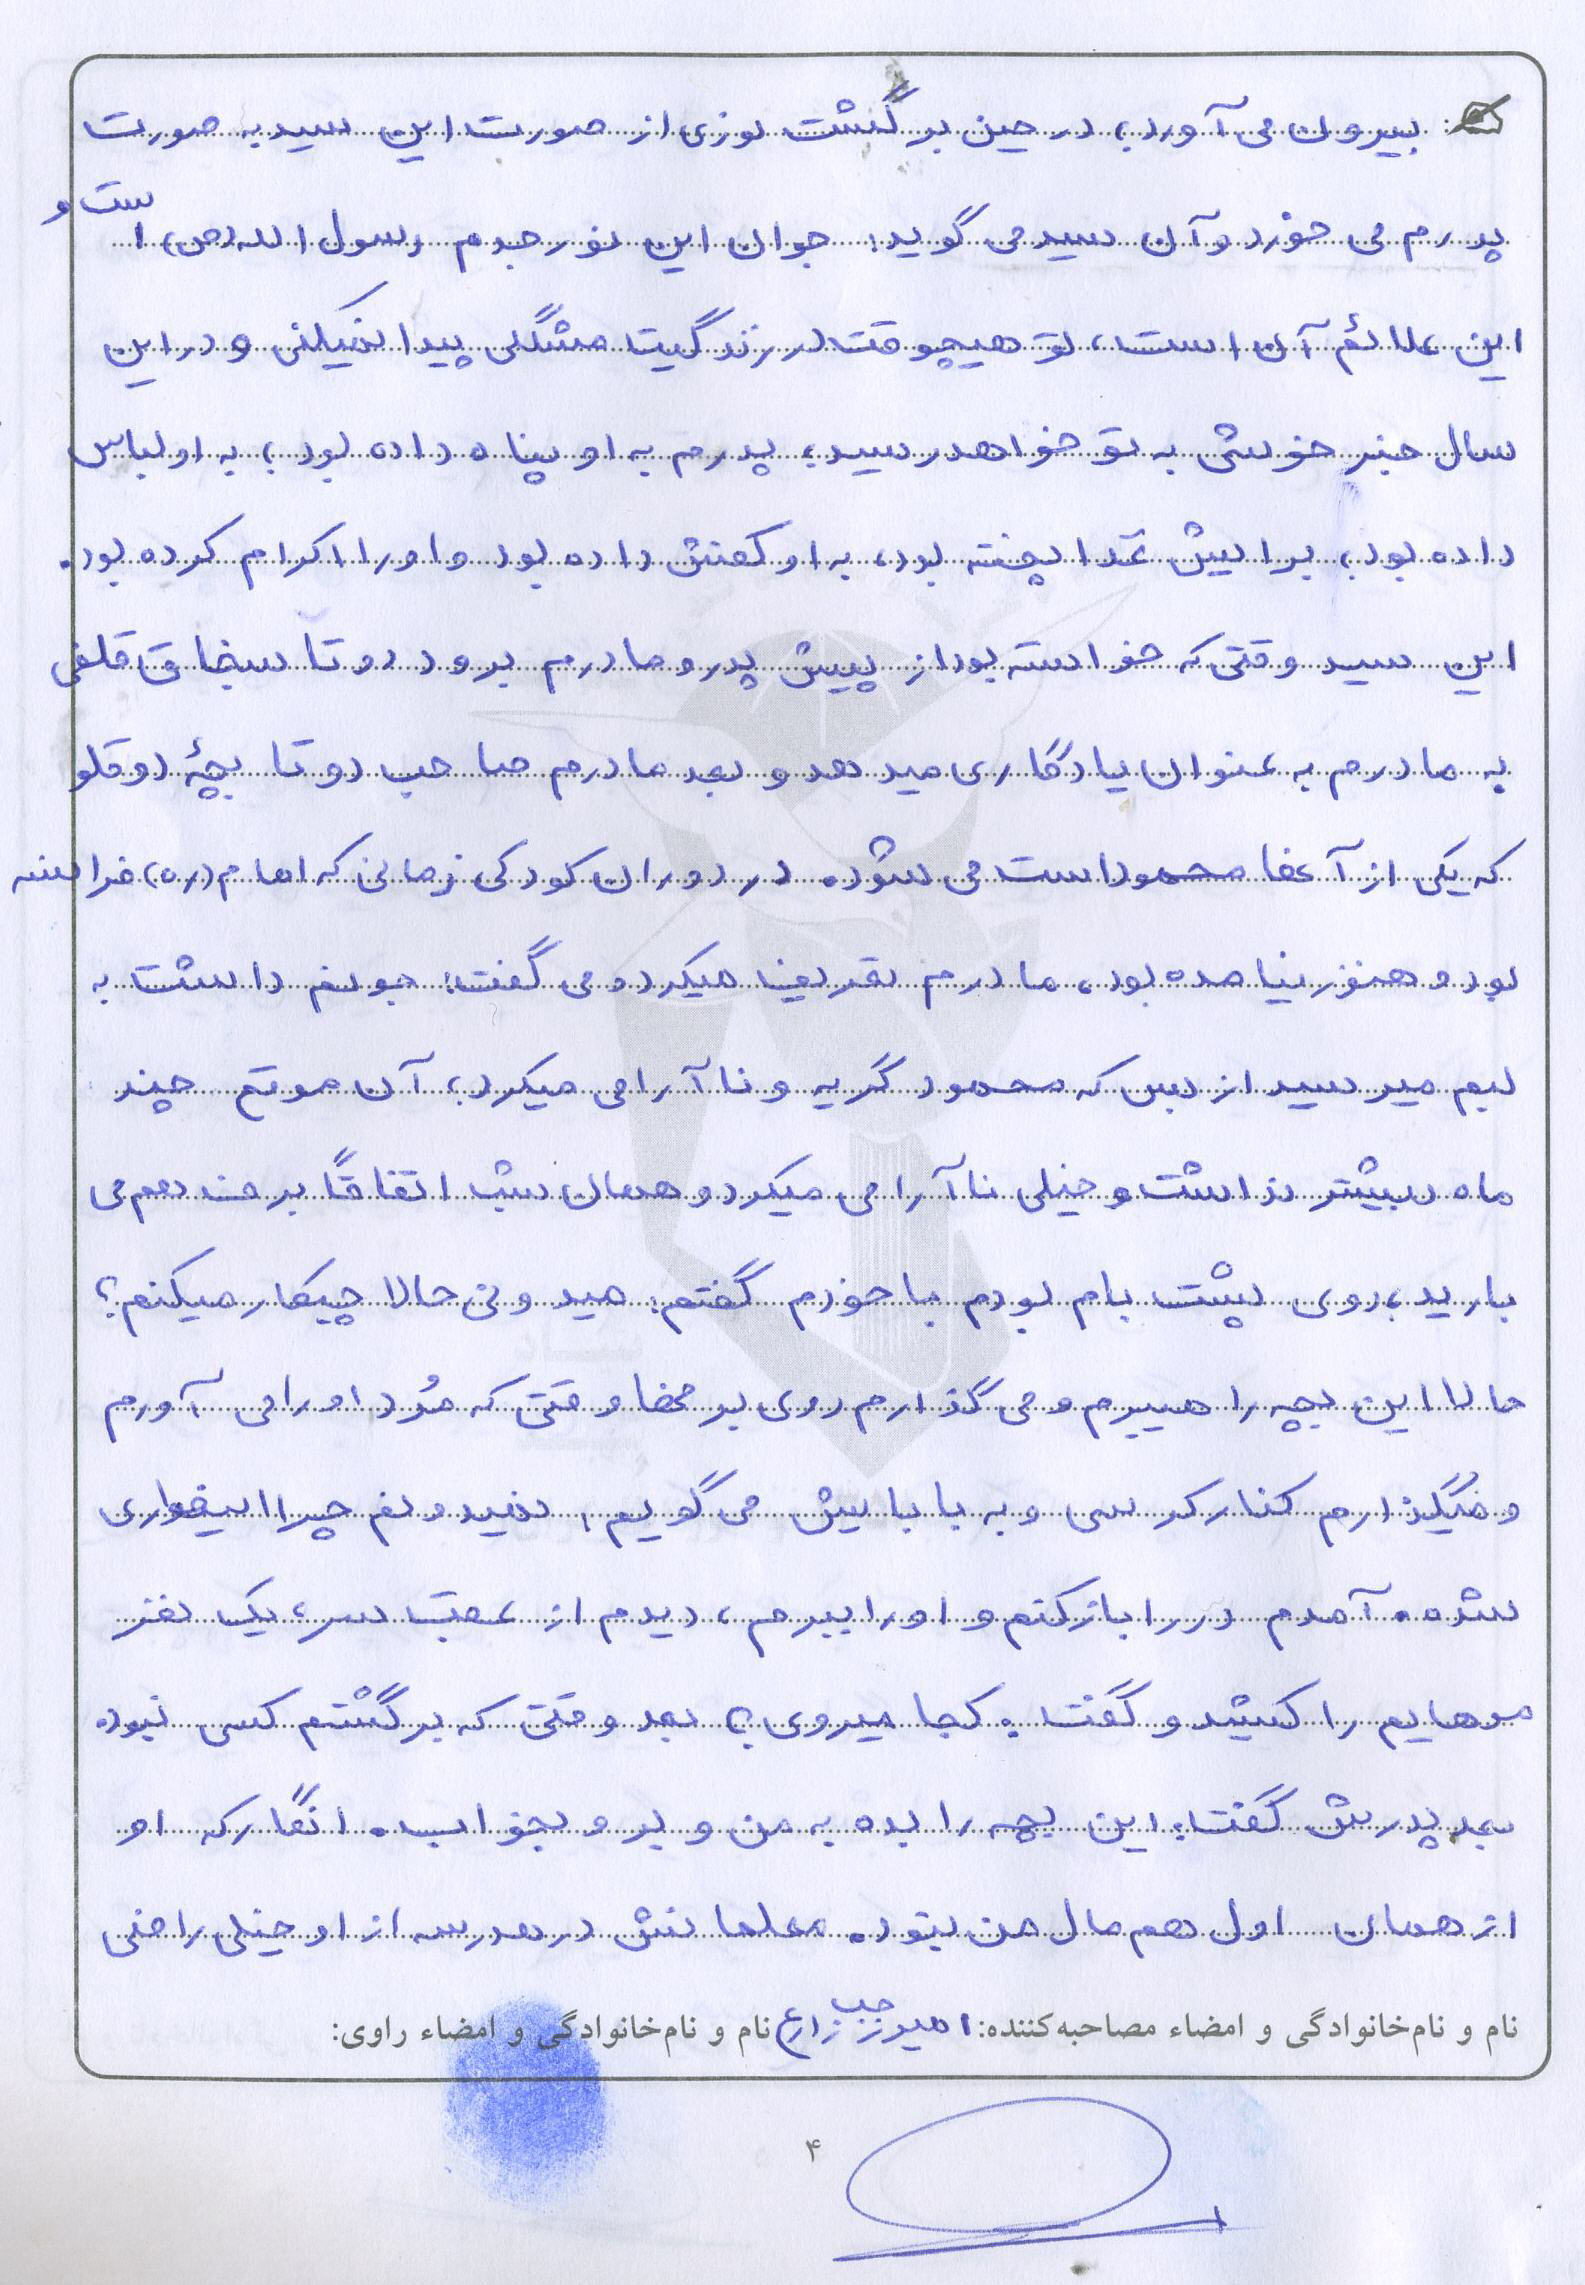 بیرون می‌آورد، در حین برگشت نوری از صورت این سید به صورت
پدرم می خورد و آن سید می گوید: جوان این نور جدم رسول الله (ص) است و
این علائم آن است، تو هیچوقت در زندگیت مشکلی پیدا نمیکنی و در این
سال خبر خوشی به تو خواهد رسید، پدرم به او پناه داده بود، به او لباس
داده بود، برایش غذا پخته بود، به او کفش داده بود و او را اکرام کرده بود.
این سید وقتی که خواسته بود از پیش پدر و مادرم برود دو تا سنجاق قلفی
به مادرم به عنوان یادگاری میدهد و بعد مادرم صاحب دو تا بچۀ دوقلو
که یکی از آنها محمود است می شود. در دوران کودکی زمانی که امام (ره) فرانسه
بود و هنوز نیامده بود، مادرم تعریف میکرد و می گفت: جونم داشت به
لبم میرسید از بس که محمود گریه و ناآرامی میکرد، آن موقع چند
ماه بیشتر نداشت و خیلی ناآرامی میکرد و همان شب اتفاقاً برف هم می
بارید، روی پشت بام بودم با خودم گفتم: میدونی حالا چیکار میکنم؟
حالا این بچه را میبرم و می گذارم روی برفها و وقتی که مُرد او را می آورم
و میگذارم کنار کرسی و به بابایش می گویم: نمیدونم چرا اینطوری
شده. آمدم در را باز کنم و او را ببرم، دیدم از عقب سر، یک نفر
موهایم را کشید و گفت: کجا میروی؟ بعد وقتی که برگشتم کسی نبود.
بعد پدرش گفت: این بچه را بده به من و برو بخواب. انگار که او
از همان اول هم مال من نبود. معلمانش در مدرسه از او خیلی راضی
نام و نام‌خانوادگی و امضاء مصاحبه‌کننده: امیر رجب زارع نام و نام‌خانوادگی و امضاء راوی:
۴